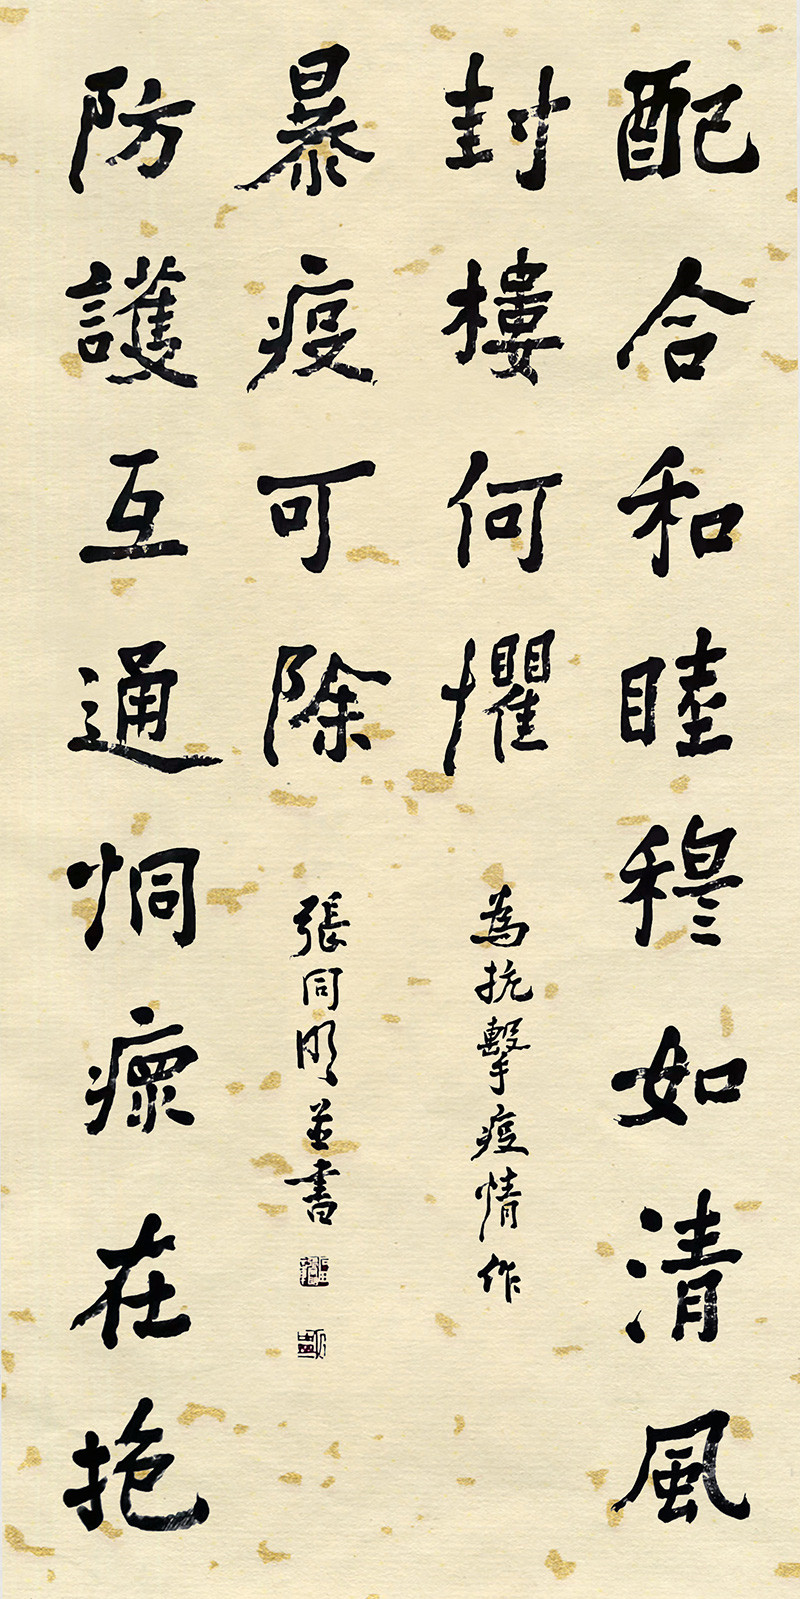 配合和睦穆如清風
封樓何懼
防護互通恫瘝在抱
暴疫可除
為抗擊疫情作
張同明並書